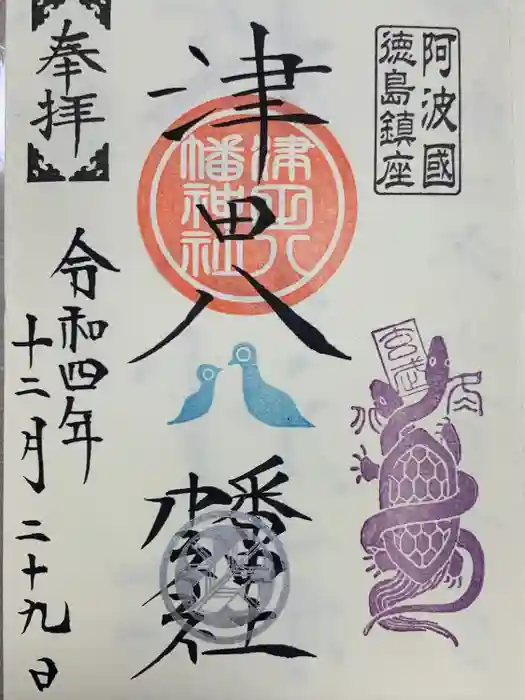 阿波國
徳島鎮座
奉拝
津田八幡神社
津田八
幡神社
玄武
令和四年
十二月二十九日